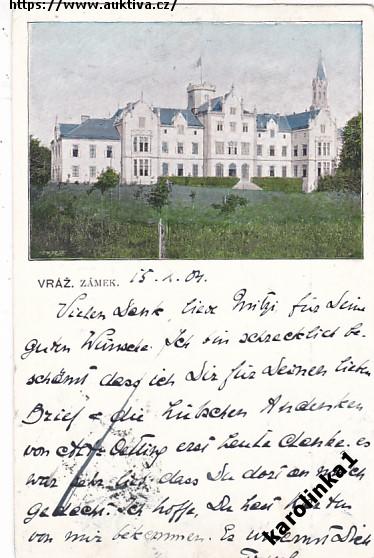 https://www.auktiva.cz/
VRÁŽ. ZÁMEK. 15. X. 04.
Vielen Dank, liebe Mitzi für Deine
guten Wünsche. Ich bin schrecklich be-
schämt dass ich Dir für Deinen lieben
Brief & die hübschen Andenken
von Alt-Oetting erst heute danke. es
war sehr lieb, dass Du dort an mich
gedacht. Ich hoffe, Du hast
von mir bekommen. Es umarmt Dich
karolinka1